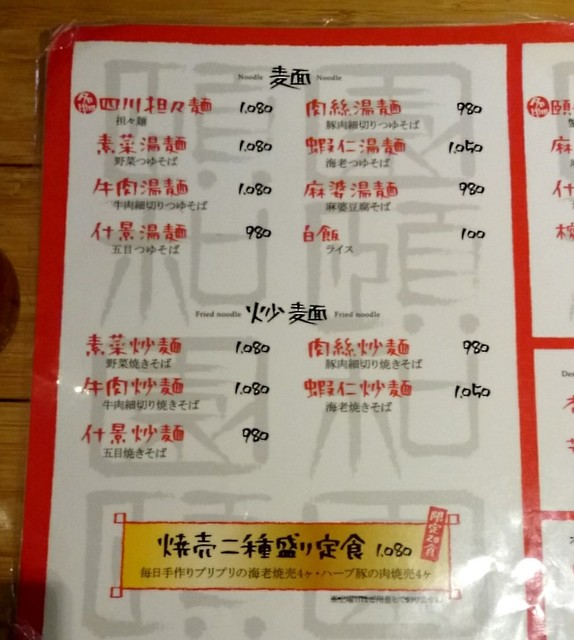 Noodle 麺面 Noodle
四川担々麺 1,080
担々麺
素菜湯麺 1,080
野菜つゆそば
牛肉湯麺 1,080
牛肉細切りつゆそば
什景湯麺 980
五目つゆそば
肉絲湯麺 980
豚肉細切りつゆそば
蝦仁湯麺 1,050
海老つゆそば
麻婆湯麺 980
麻婆豆腐そば
白飯 100
ライス
Fried noodle 炒麺面 Fried noodle
素菜炒麺 1,080
野菜焼きそば
牛肉炒麺 1,080
牛肉細切り焼きそば
什景炒麺 980
五目焼きそば
肉絲炒麺 980
豚肉細切り焼きそば
蝦仁炒麺 1,050
海老焼きそば
限定20食
焼売二種盛り定食 1,080
毎日手作りプリプリの海老焼売4ヶ・ハーブ豚の肉焼売4ヶ